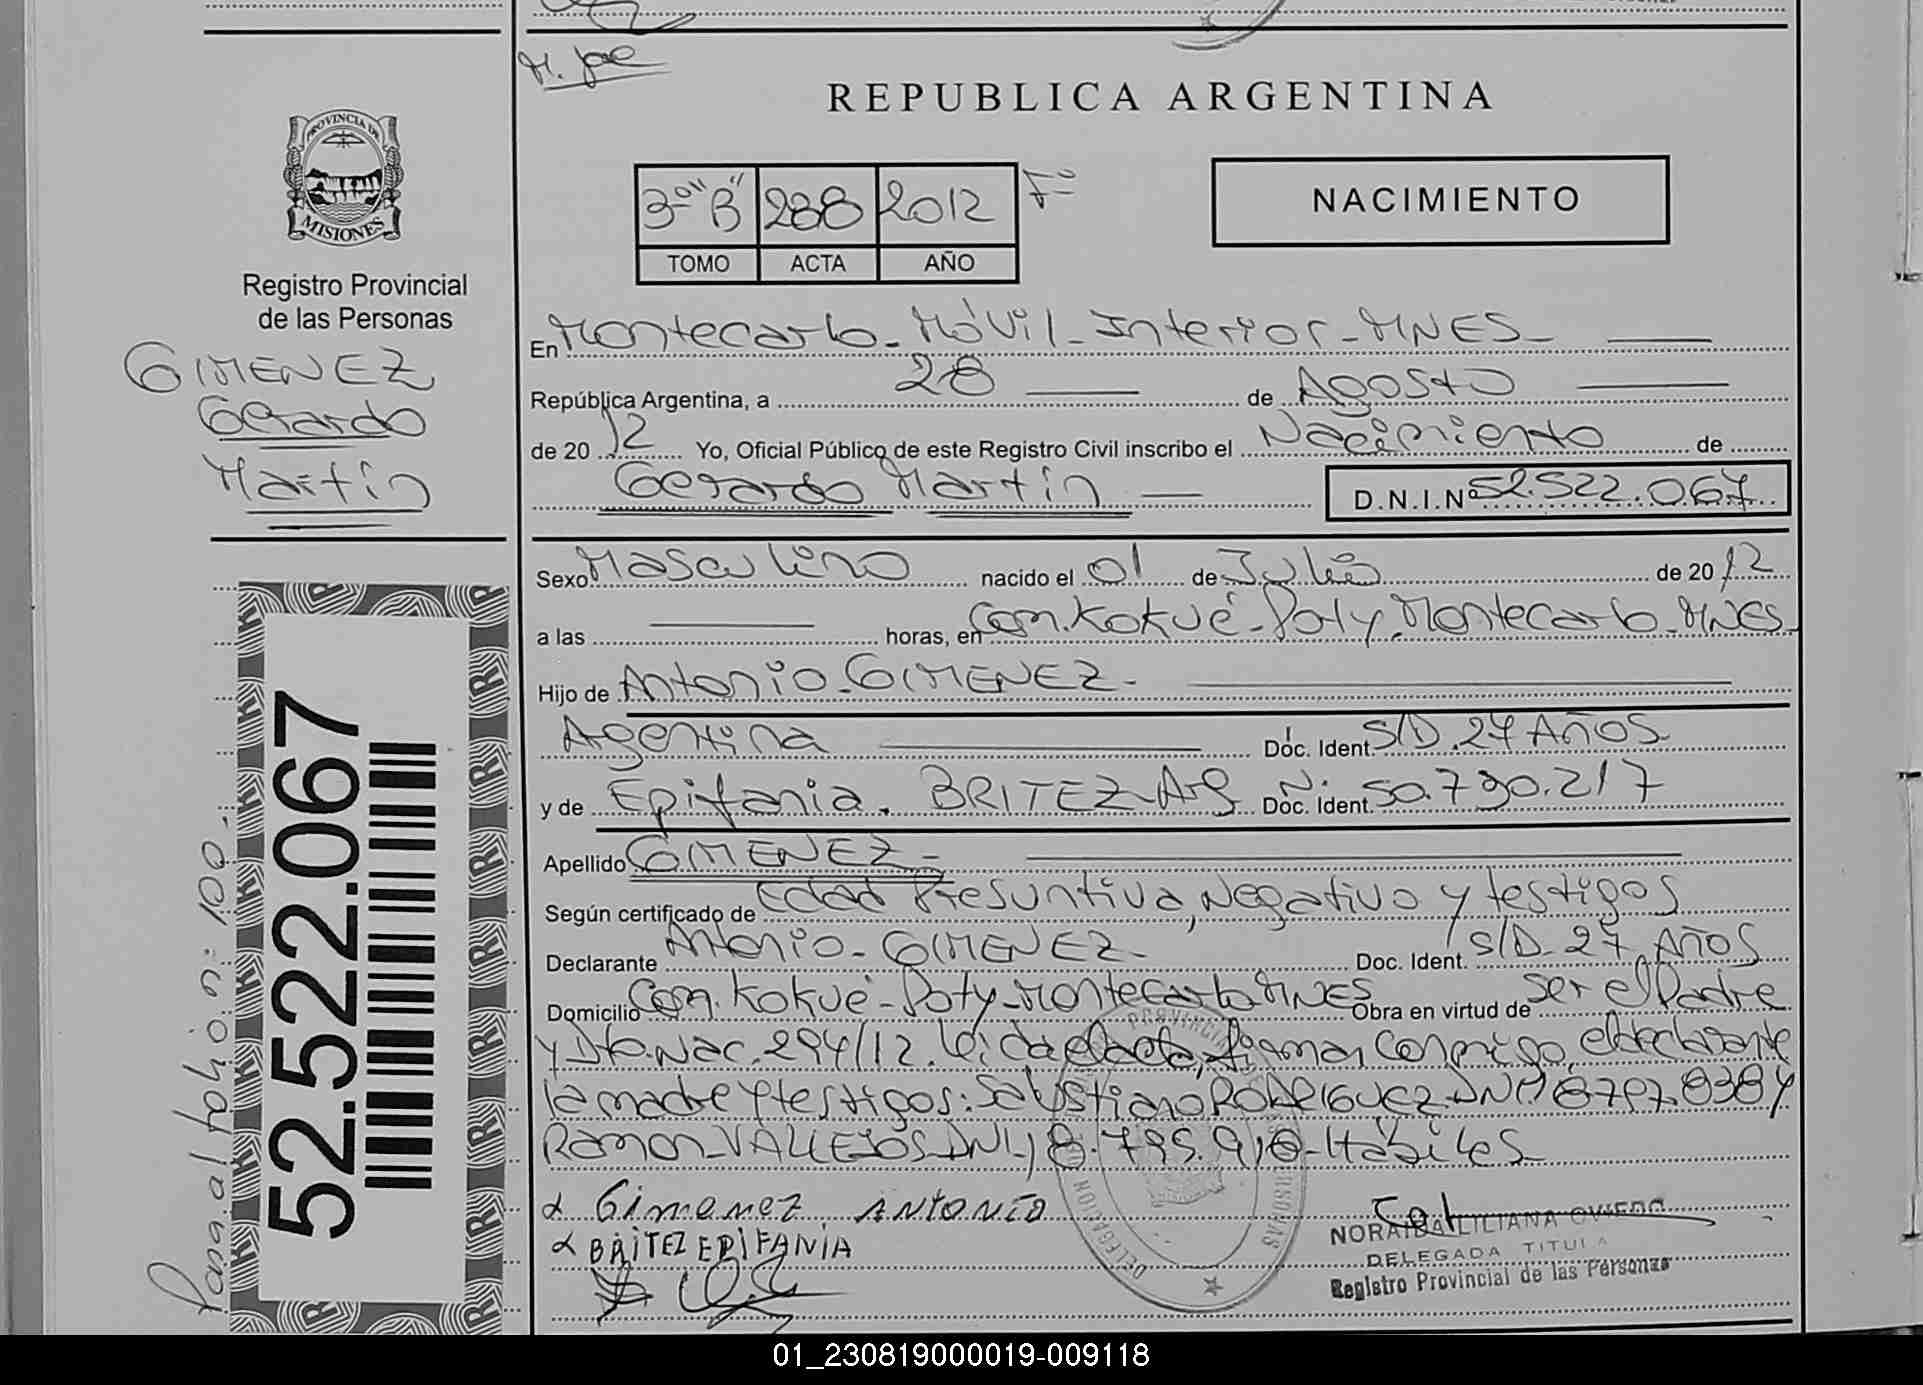 M. José
REPUBLICA ARGENTINA
PROVINCIA DE
MISIONES
Registro Provincial
de las Personas
3º "B" 288 2012 Fº
TOMO ACTA AÑO
NACIMIENTO
GIMENEZ
Gerardo
Martín
En Montecarlo - Móvil - Interior - MNES -
República Argentina, a 28 de Agosto
de 20 12 Yo, Oficial Público de este Registro Civil inscribo el Nacimiento de
Gerardo Martín D.N.I.Nº 52.522.067
Sexo Masculino nacido el 01 de Julio de 20 12
a las horas, en Com. Kokué - Poty. Montecarlo - MNES -
Hijo de Antonio - GIMENEZ -
Agentina Doc. Ident. S/D. 27 AÑOS
y de Epifania. BRITEZ - Arg Doc. Ident. Nº 50.790.217
Apellido GIMENEZ -
Según certificado de Edad Presuntiva, Negativo y testigos
Declarante Antonio - GIMENEZ - Doc. Ident. S/D - 27 AÑOS
Domicilio Com. Kokué - Poty - Montecarlo MNES Obra en virtud de ser el Padre
y Dto. Nac. 294/12. Leída el acta, firman conmigo, el declarante
la madre y testigos: Salustiano RODRIGUEZ - DNI 18.797.838 y
Ramon - VALLEJOS - DNI 18.795.910 - Hábiles -
Gimenez ANTONIO
BRITEZ EPIFANIA
NORAIDA LILIANA OVIEDO
DELEGADA TITULA
Registro Provincial de las Personas
52.522.067
Pasa al folio nº: 100.-
01_230819000019-009118